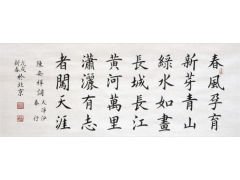 春風孕育
新芽青山
綠水如畫
長城長江
黃河萬里
瀟灑有志
者闖天涯
陳安祥詞
天淨沙
春行
新春於北京